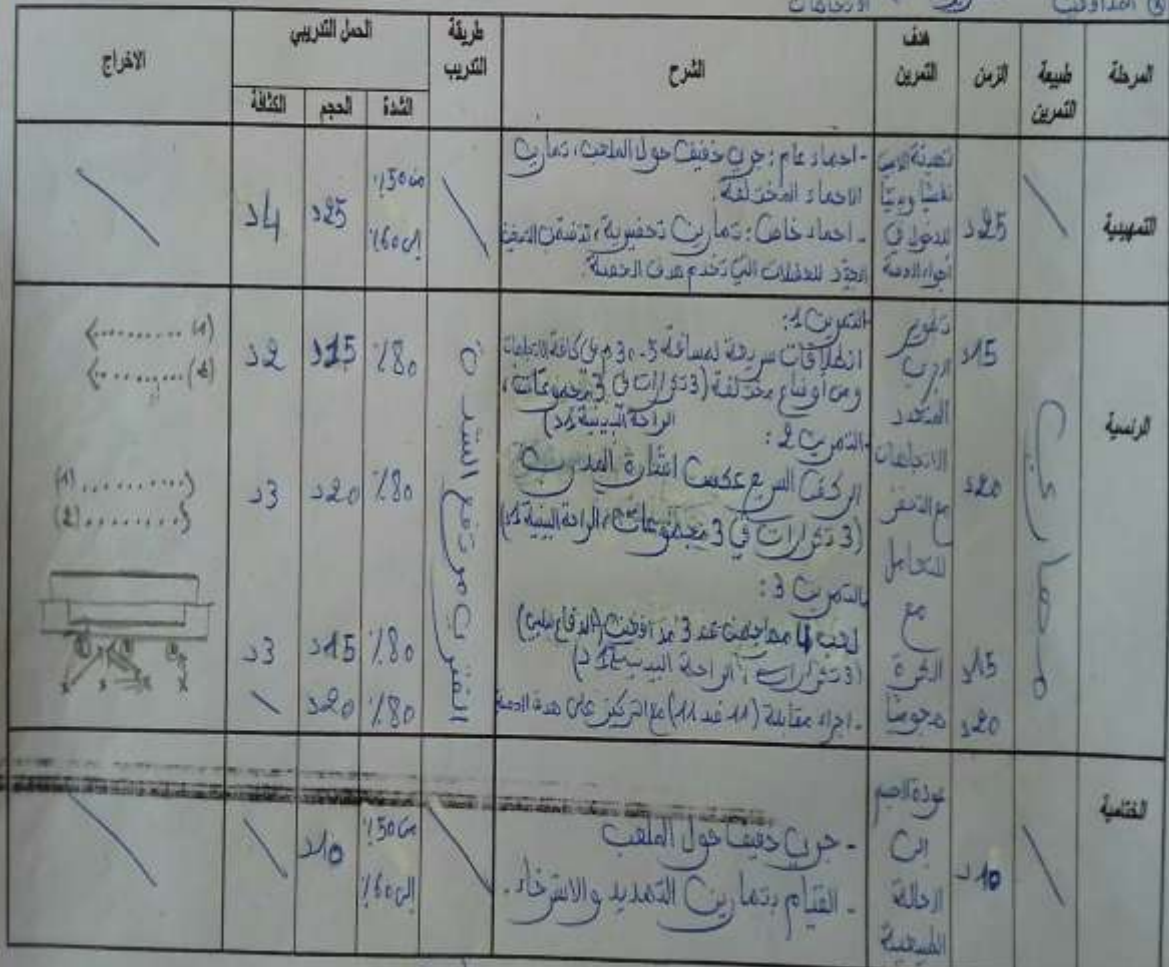 الاتجاهات
المرحلة
طبيعة التمرين
الزمن
هدف التمرين
الشرح
طريقة التدريب
الحمل التدريبي
الاخراج
الشدة
الحجم
الكثافة
التمهيدية
25د
نفسيا وبدنيا
للدخول في
- احماء عام: جري خفيف حول الملعب، تمارين
الاحماء المختلفة.
- احماء خاص: تمارين تحضيرية،
الجيد للعضلات التي تخدم هدف الحصة.
من 50%
إلى 60%
25د
4د
الرئيسية
مهاري
15د
20د
15د
20د
تطوير
الجري
المتعدد
الاتجاهات
مع
للتعامل
مع
الكرة
هجوميا
التمرين 1:
انطلاقات سريعة لمسافة 5-30م في كافة الاتجاهات
ومن أوضاع مختلفة (3 تكرارات في 3 مجموعات،
الراحة البينية 1د)
التمرين 2:
الركض السريع عكس اشارة المدرب
(3 تكرارات في 3 مجموعات، الراحة البينية 1د)
التمرين 3:
لعب 4 مهاجمين ضد 3 مدافعين
(3 تكرارات، الراحة البينية 1د)
- اجراء مقابلة (11 ضد 11) مع التركيز على هدف الحصة
مرتفع الشدة
80% 15د 2د
80% 20د 3د
80% 15د 3د
80% 20د
(1)
(2)
(1)
(2)
الختامية
10د
عودة الجسم
إلى
الحالة
الطبيعية
- جري خفيف حول الملعب
- القيام بتمارين التمديد والاسترخاء.
من 50%
إلى 60%
10د